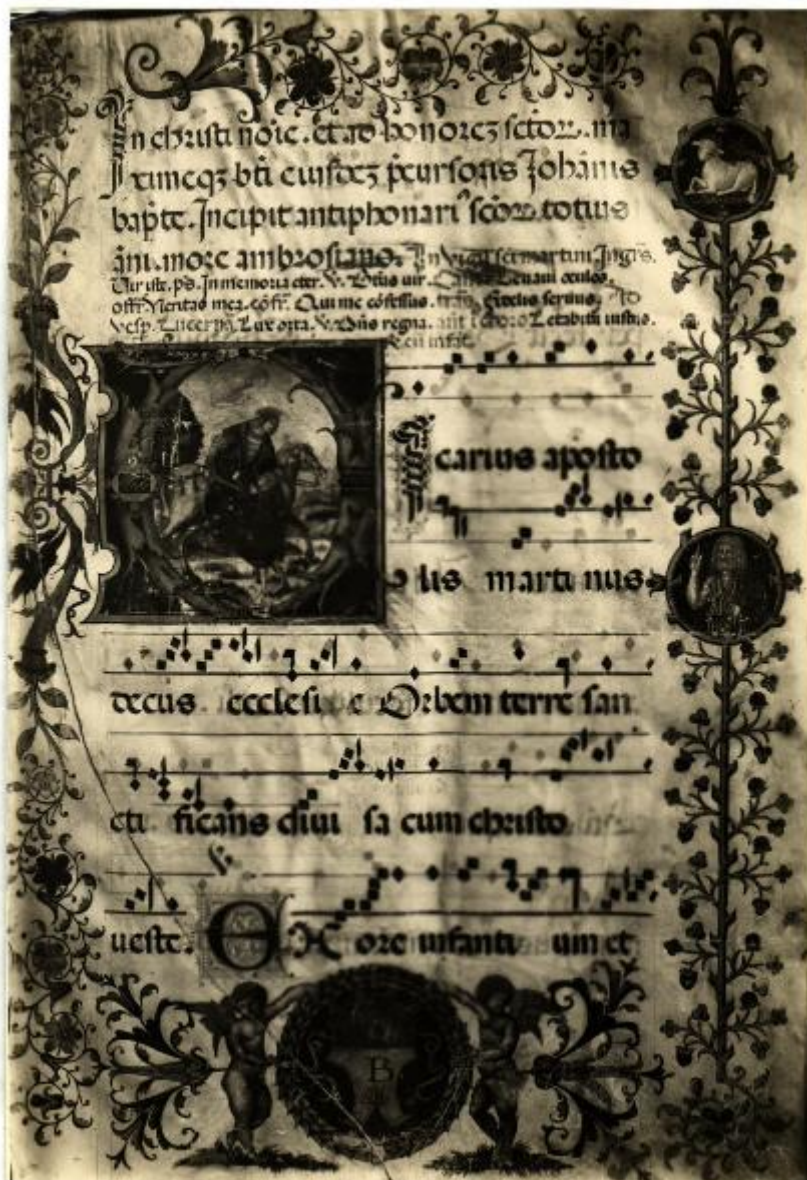 In christi noīe. et ad honorez sctōꝝ. ma
ximeqz bti eiusdez p̄cursoris Johānis
bapte. Incipit antiphonari' scōꝝ totius
āni. more ambrosiano. In scti martini Ingrs̄.
Uir iste. ps. In memoria eter. V. Levavi oculos.
offr̄. Veritas mea. cōfr̄. Qui me cōfessus. servus.
vesp. Lucerna. Lux orta. V. Dn̄s regna. Letabitur iustus.
icarius aposto
lis marti nus
decus ecclesi e Orbem terre san
cti ficans divi sa cum christo
veste. EX ore infanti um et
B